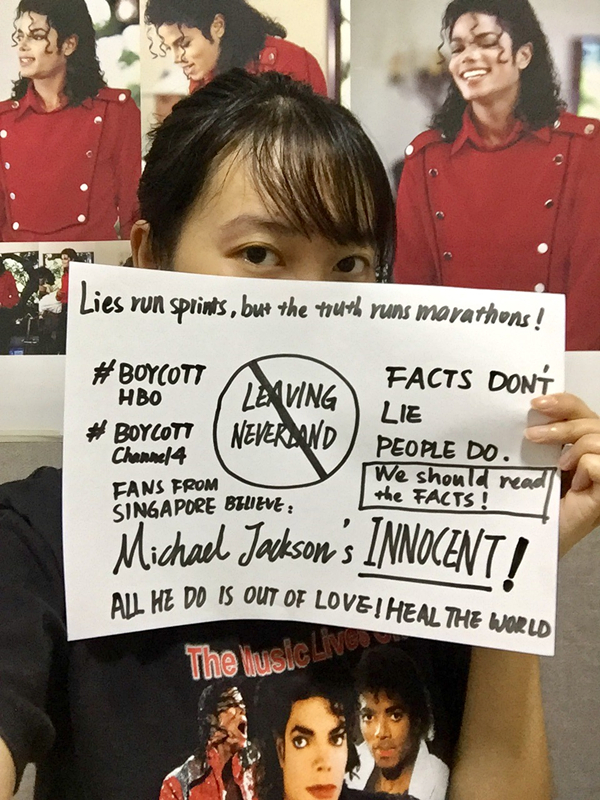 Lies run sprints, but the truth runs marathons!
# BOYCOTT
HBO
# BOYCOTT
Channel4
LEAVING
NEVERLAND
FACTS DON'T
LIE
PEOPLE DO.
We should read
the FACTS!
FANS FROM
SINGAPORE BELIEVE:
Michael Jackson's INNOCENT!
ALL HE DO IS OUT OF LOVE! HEAL THE WORLD
The Music Lives